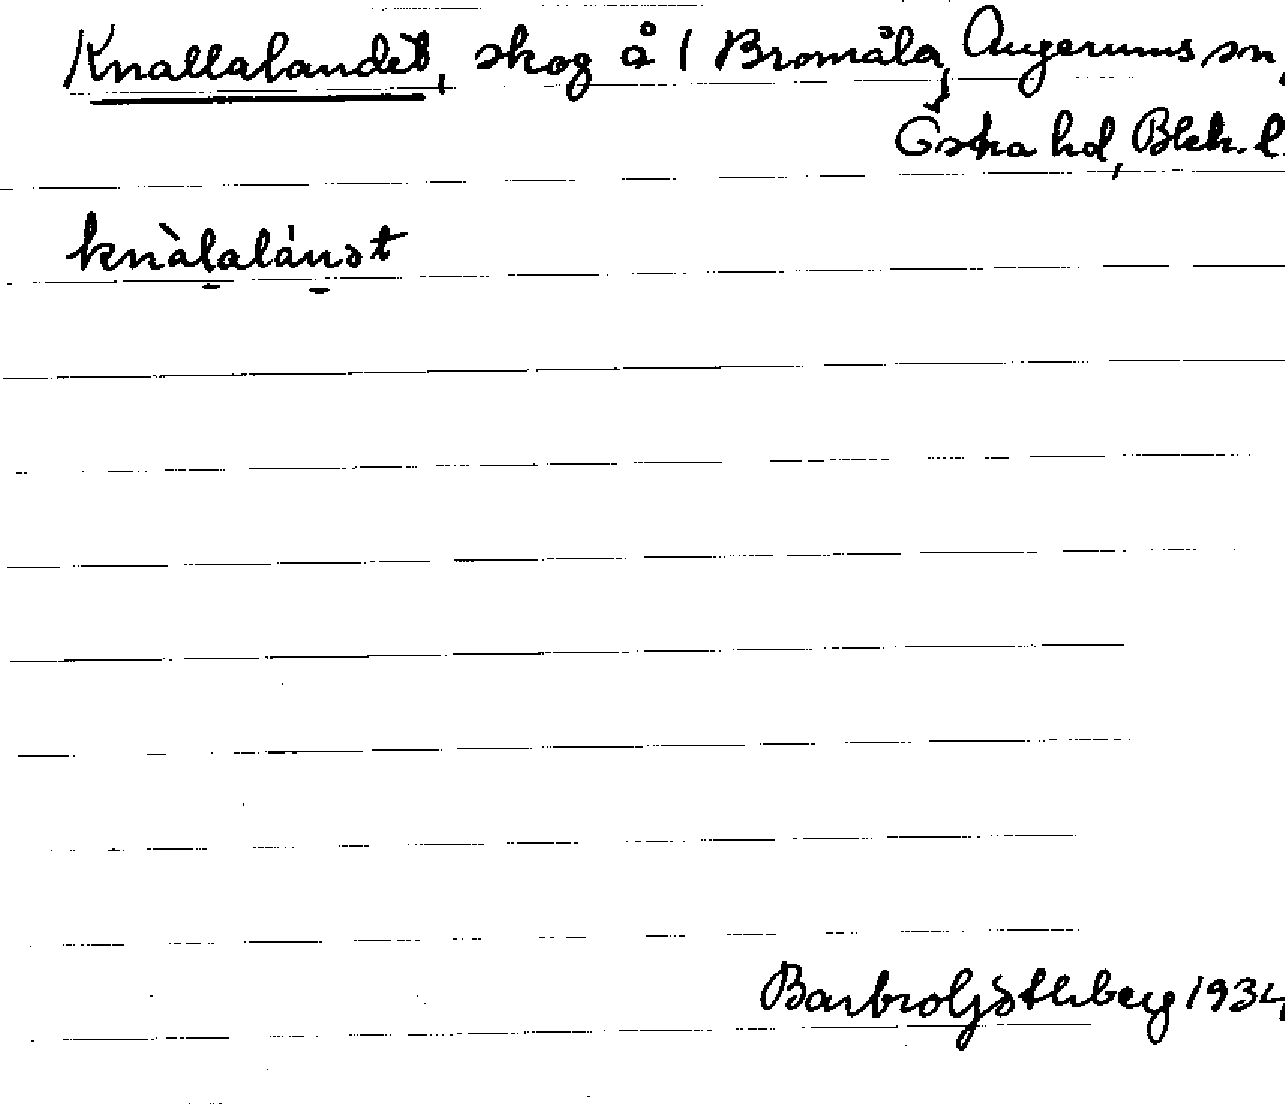 Knallalandet, skog å 1 Bromåla, Augerums sn,
Östra hd, Blek. l.
knàlalánət
Barbro Götheberg 1934